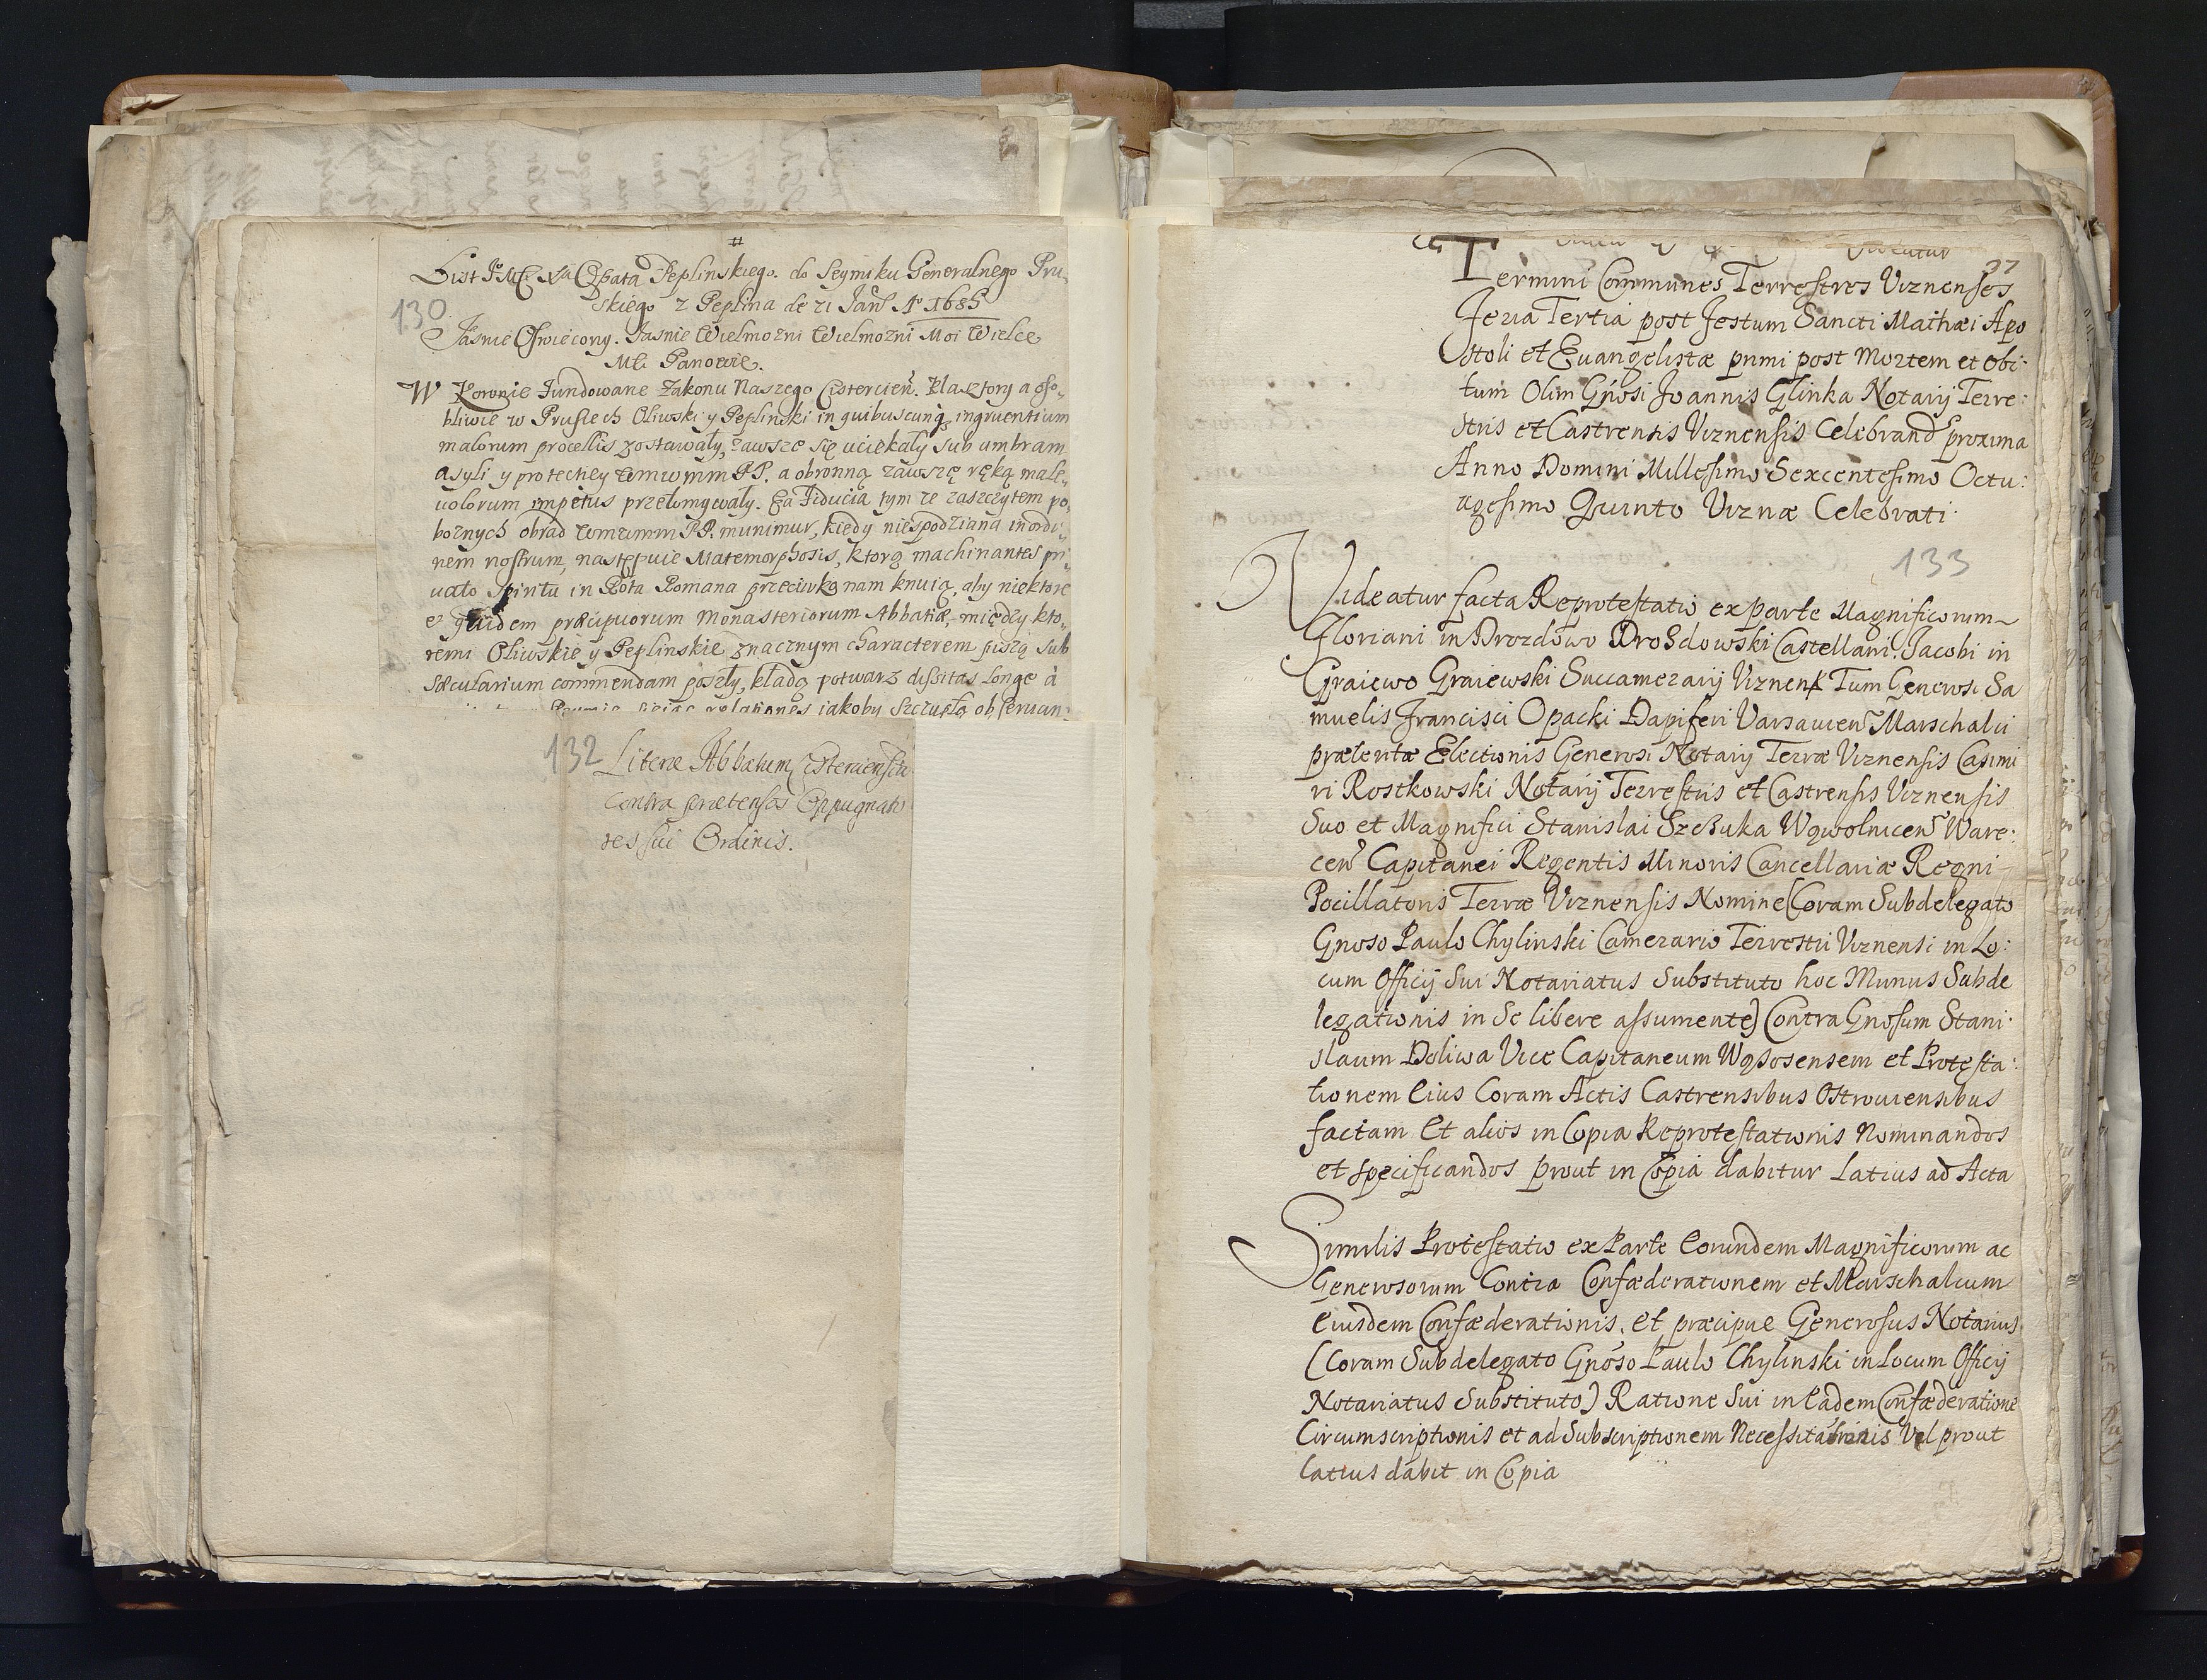 #
List JE Mci Xa Opata Peplinskiego. do Seymiku Generalnego Pru
skiego z Peplina de 21 Jan. Ao 1685
130
Jasnie Oswiecony. Jasnie Wielmozni Wielmozni Moi Wielce
Mci Panowie.
W Koronie Fundowane Zakonu Naszego Cistercien. Klasztory a oso„
bliwie w Prusiech Oliwski y Peplinski in quibuscunq ingruentium
malorum procellis zostawały, zawsze się uciekały sub umbram
asyli y protectiey Wmwmm PP. a obronną zawszę ręką male„
uolorum impetus przełomywały. Ea Fiducia tym ze zaszczytem po„
boznych obrad Wmwmm PP. munimur, kiedy niespodziana in ordi„
nem nostrum, następuie Matemorphosis, ktorą machinantes pri„
uato Spiritu in Rota Romana przeciwko nam knuią, aby niektore
e quidem præcipuorum Monasteriorum Abbatiæ, między kto„
remi Oliwskie y Peplinskie znacznym characterem piszą sub
Sæcularium commendam poszły, kładą potwarz dissitas longe à
relationes iakoby szczupłą obseruan:
132
Literæ Abbatum Cisterciensiu
contra prætensos Oppugnato
res sui Ordinis.
37
Termini Communes Terrestres Viznenses
Feria Tertia post Festum Sancti Mathæi Apo
stoli et Euangelistæ primi post Mortem et Obi:
tum Olim Gnosi Joannis Glinka Notarij Terre:
stris et Castrensis Viznensis Celebrand proxima
Anno Domini Millesimo Sexcentesimo Octu:
agesimo Quinto Viznæ Celebrati
133
Videatur facta Reprotestatio ex parte Magnificorum
Floriani in Drozdowo Drosdowski Castellani. Jacobi in
Graiewo Graiewski Succamerarij Viznen Tum Generosi Sa
muelis Francisci Opacki Dapiferi Varsauien Marschalci
prætentæ Electionis Generosi Notarij Terræ Viznensis Casimi
ri Rostkowski Notarij Terrestris et Castrensis Viznensis
Suo et Magnifici Stanislai Szczuka Wąwolnicen Ware:
cen Capitanei Regentis Minoris Cancellariæ Regni
Pocillatoris Terræ Viznensis Nomine (Coram Subdelegato
Gnoso Paulo Chylinski Camerario Terrestri Viznensi in Lo:
cum Officij Sui Notariatus Substituto hoc Munus Subde
legationis in Se libere assumente) Contra Gnosum Stani:
slaum Doliwa Vice Capitaneum Wąsosensem et Protesta:
tionem Eius Coram Actis Castrensibus Ostrouiensibus
factam Et alios in Copia Reprotestationis Nominandos
et specificandos prout in Copia dabitur Latius ad Acta
Similis Protestatio ex Parte Eorundem Magnificorum ac
Generosorum Contra Confæderationem et Marschalcum
Eiusdem Confæderationis, et præcipue Generosus Notarius
(Coram Subdelegato Gnoso Paulo Chylinski in Locum Officij
Notariatus Substituto) Ratione Sui in Eadem Confæderatione
Circumscriptionis et ad Subscriptionem Vel prout
Latius dabit in Copia